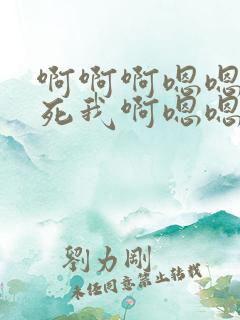 啊啊啊嗯嗯
死我啊嗯嗯
劉力剛
未经同意禁止转载